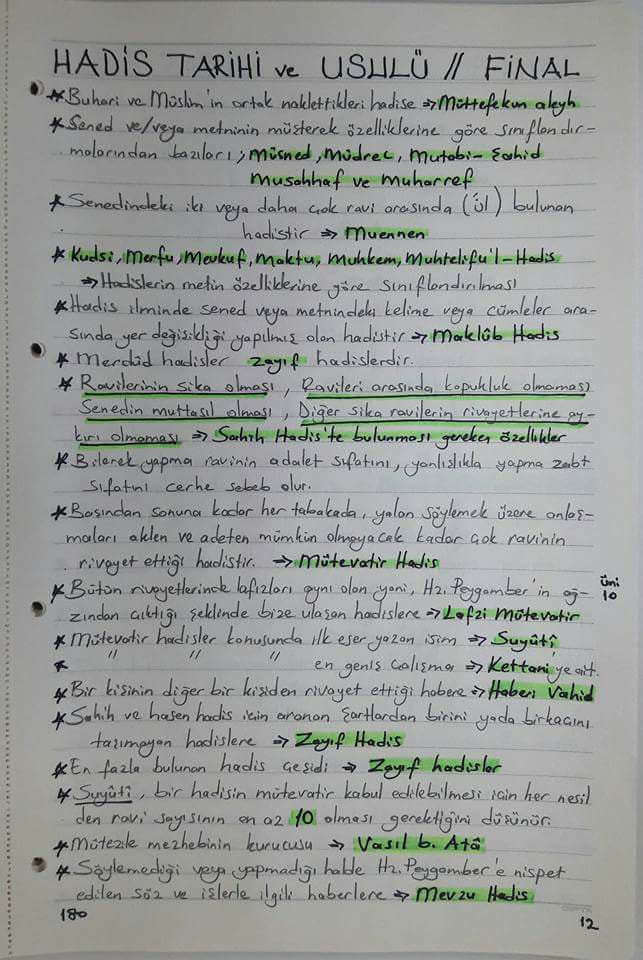 HADİS TARİHİ ve USULÜ // FİNAL
* Buhari ve Müslim'in ortak naklettikleri hadise ⇒ Müttefekun aleyh
* Sened ve/veya metninin müşterek özelliklerine göre sınıflandır-
malarından bazıları; Müsned, Müdrec, Mutabi-Şahid
Musahhaf ve Muharref
* Senedindeki iki veya daha çok ravi arasında (أنّ) bulunan
hadistir ⇒ Muennen
* Kudsi, Merfu, Mevkuf, Maktu, Muhkem, Muhtelifu'l-Hadis
⇒ Hadislerin metin özelliklerine göre sınıflandırılması
* Hadis ilminde sened veya metnindeki kelime veya cümleler ara-
sında yer değişikliği yapılmış olan hadistir ⇒ Maklûb Hadis
* Merdûd hadisler zayıf hadislerdir.
* Ravilerinin sika olması, Ravileri arasında kopukluk olmaması
Senedin muttasıl olması, Diğer sika ravilerin rivayetlerine ay-
kırı olmaması ⇒ Sahih Hadis'te bulunması gereken özellikler
* Bilerek yapma ravinin adalet sıfatını, yanlışlıkla yapma zabt
sıfatını cerhe sebeb olur.
* Başından sonuna kadar her tabakada, yalan söylemek üzere anlaş-
maları aklen ve adeten mümkün olmayacak kadar çok ravinin
rivayet ettiği hadistir. ⇒ Mütevatir Hadis
* Bütün rivayetlerinde lafızları aynı olan yani, Hz. Peygamber'in ağ-
zından çıktığı şeklinde bize ulaşan hadislere ⇒ Lafzi Mütevatir
üni
10
* Mütevatir hadisler konusunda ilk eser yazan isim ⇒ Suyûtî
* " " " en geniş çalışma ⇒ Kettani'ye ait.
* Bir kişinin diğer bir kişiden rivayet ettiği habere ⇒ Haberi Vahid
* Sahih ve hasen hadis için aranan şartlardan birini yada birkaçını
taşımayan hadislere ⇒ Zayıf Hadis
* En fazla bulunan hadis çeşidi ⇒ Zayıf hadisler
* Suyûtî, bir hadisin mütevatir kabul edilebilmesi için her nesil
den ravi sayısının en az 10 olması gerektiğini düşünür.
* Mütezile mezhebinin kurucusu ⇒ Vasıl b. Atâ
* Söylemediği veya yapmadığı halde Hz. Peygamber'e nispet
edilen söz ve işlerle ilgili haberlere ⇒ Mevzu Hadis
180
12